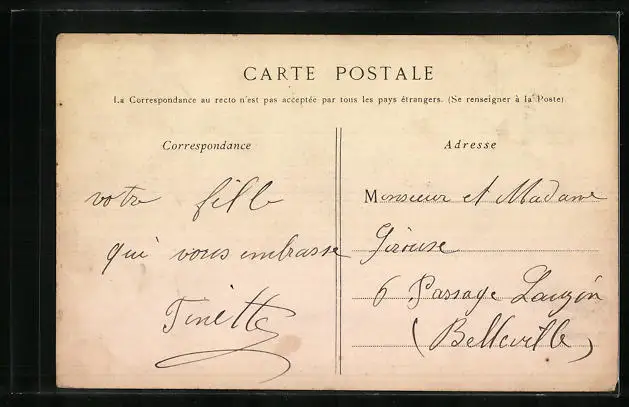 CARTE POSTALE
La Correspondance au recto n'est pas acceptée par tous les pays étrangers. (Se renseigner à la Poste)
Correspondance
votre fille
qui vous embrasse
Tinette
Adresse
Monsieur et Madame
Girouse
6 Passage Lauzin
(Belleville)